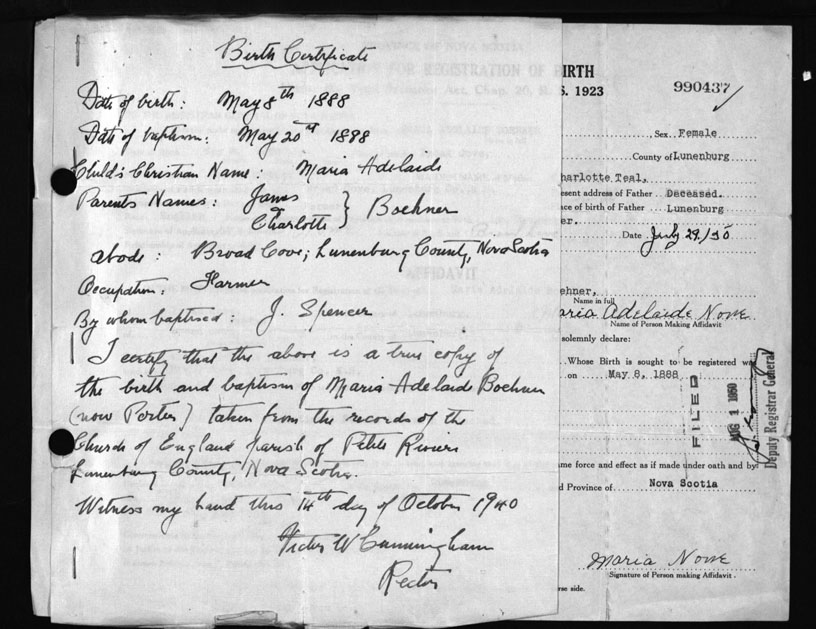 Birth Certificate
Date of birth: May 8th 1888
Date of baptism: May 20th 1888
Child's Christian Name: Maria Adelaide
Parents Names: James & Charlotte } Boehner
abode: Broad Cove; Lunenburg County, Nova Scotia
Occupation: Farmer
By whom baptised: J. Spencer
I certify that the above is a true copy of
the birth and baptism of Maria Adelaide Boehner
(now Porter) taken from the records of the
Church of England parish of Petite Riviere
Lunenburg County, Nova Scotia.
Witness my hand this 14th day of October 1940
Victor W Cunningham
Rector
FOR REGISTRATION OF
BIRTH
S. 1923
990437
Sex Female
County of Lunenburg
harlotte Teal,
esent address of Father Deceased.
ace of birth of Father Lunenburg
er.
Date July 29/50
AFFIDAVIT
ehner,
Name in full
aria Adelaide Nowe
Name of Person Making Affidavit
solemnly declare:
Whose Birth is sought to be registered was
on May 8, 1888
FILED
AUG 1 1950
Deputy Registrar General
me force and effect as if made under oath and by
d Province of Nova Scotia
Maria Nowe
Signature of Person making Affidavit.
rse side.